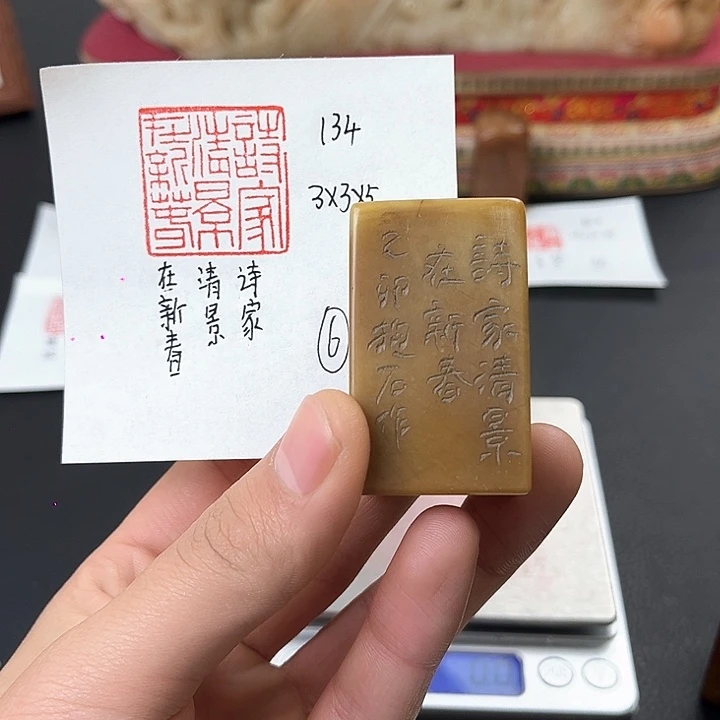 詩家
清景
在新春
134
3X3X5
诗家
清景
在新春
6
詩家清景
在新春
卯抱石作
0.0